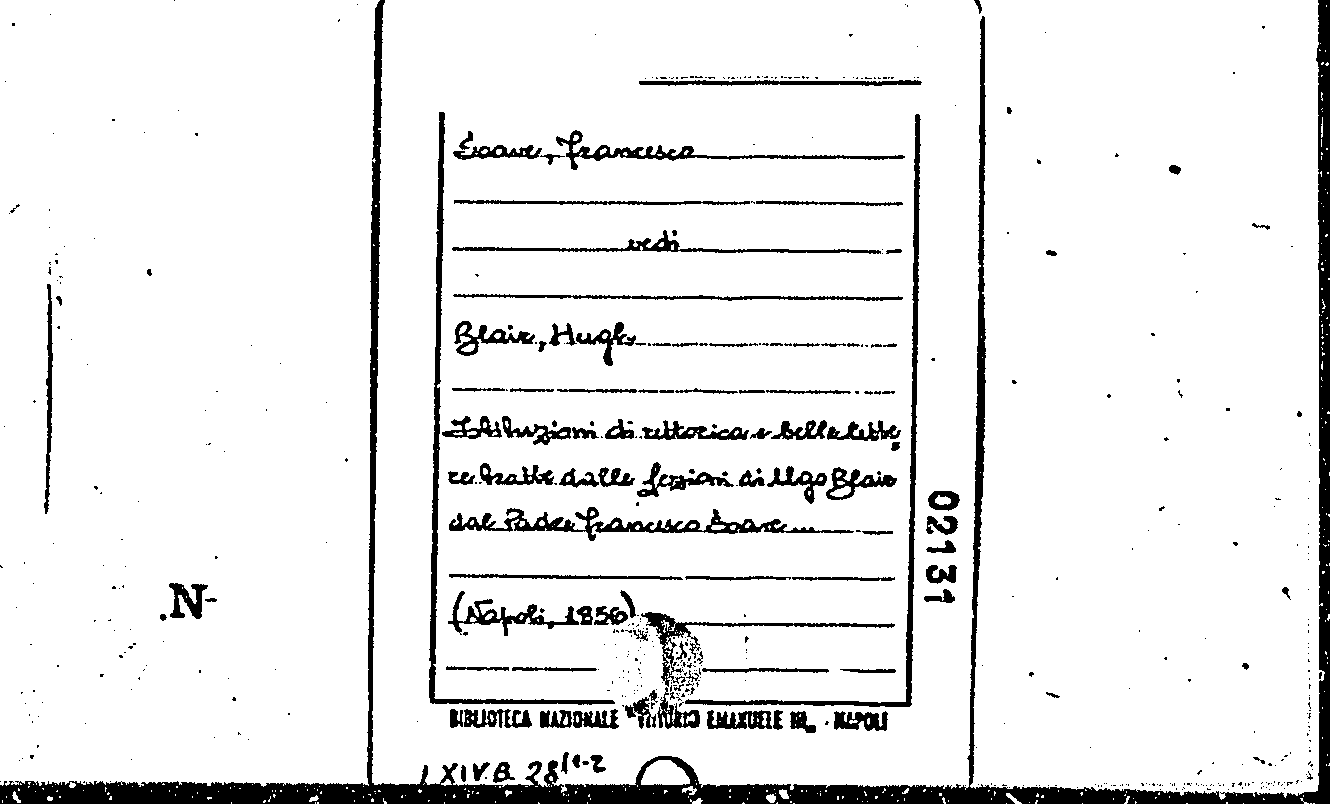 Soave, Francesco
vedi
Blair, Hugh
Istituzioni di rettorica e belle lette,
re tratte dalle lezioni di Ugo Blair
dal Padre Francesco Soave ...
02131
.N-
(Napoli, 1856)
BIBLIOTECA NAZIONALE "VITTORIO EMANUELE III" - NAPOLI
XIV.B. 28